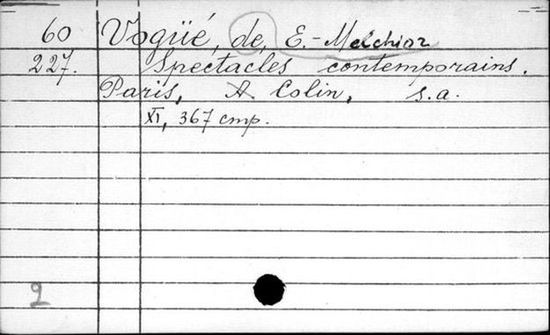 60 Vogüé, de, E.-Melchior
227. Spectacles contemporains.
Paris, A Colin, s.a.
XI, 367 стр.